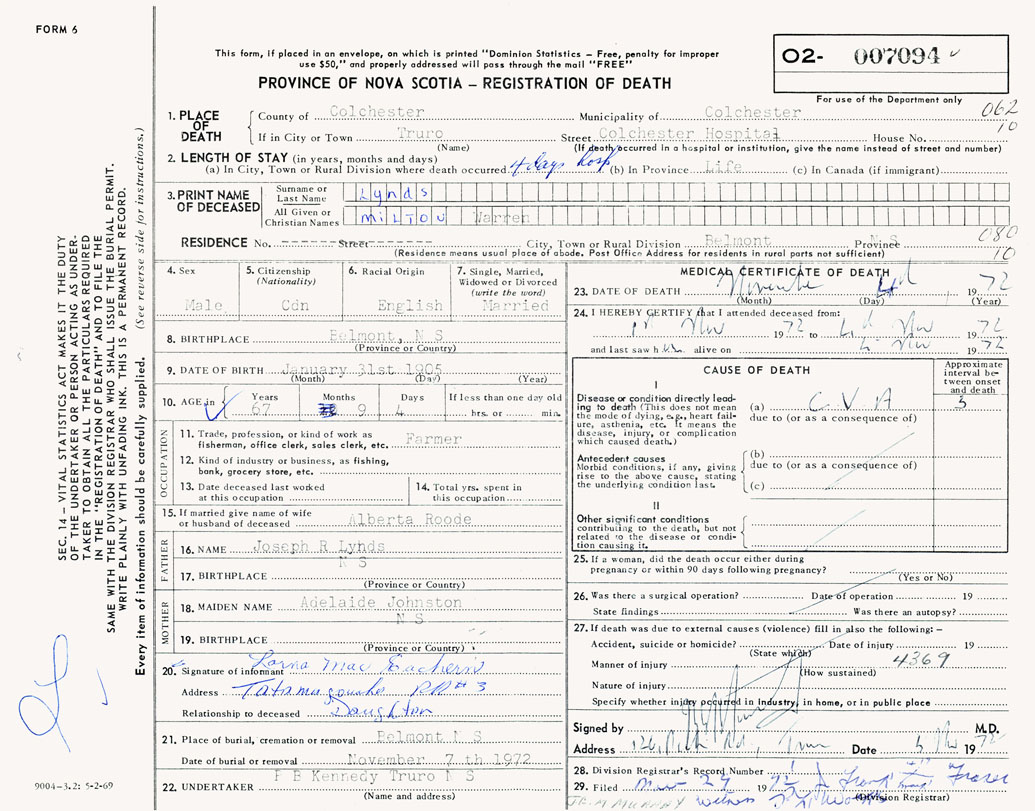 FORM 6
This form, if placed in an envelope, on which is printed "Dominion Statistics – Free, penalty for improper
use $50," and properly addressed will pass through the mail "FREE"
PROVINCE OF NOVA SCOTIA – REGISTRATION OF DEATH
02- 007094
For use of the Department only
062
10
1. PLACE OF DEATH
County of Colchester Municipality of Colchester
If in City or Town Truro Street Colchester Hospital House No.
(Name) (If death occurred in a hospital or institution, give the name instead of street and number)
2. LENGTH OF STAY (in years, months and days)
(a) In City, Town or Rural Division where death occurred 4 days hosp (b) In Province Life (c) In Canada (if immigrant)
3. PRINT NAME OF DECEASED
Surname or Last Name Lynds
All Given or Christian Names Milton Warren
080
10
RESIDENCE No. Street City, Town or Rural Division Belmont Province N S
(Residence means usual place of abode. Post Office Address for residents in rural parts not sufficient)
4. Sex Male
5. Citizenship (Nationality) Cdn
6. Racial Origin English
7. Single, Married, Widowed or Divorced (write the word) Married
8. BIRTHPLACE Belmont, N S
(Province or Country)
9. DATE OF BIRTH January 31st 1905
(Month) (Day) (Year)
10. AGE in Years Months Days If less than one day old
67 9 4 hrs. or min.
OCCUPATION
11. Trade, profession, or kind of work as
fisherman, office clerk, sales clerk, etc. Farmer
12. Kind of industry or business, as fishing,
bank, grocery store, etc.
13. Date deceased last worked
at this occupation
14. Total yrs. spent in
this occupation
15. If married give name of wife
or husband of deceased Alberta Roode
FATHER
16. NAME Joseph R Lynds
17. BIRTHPLACE N S
(Province or Country)
MOTHER
18. MAIDEN NAME Adelaide Johnston
19. BIRTHPLACE N S
(Province or Country)
20. Signature of informant Lorna Mac Eachern
Address Tatamagouche RR # 3
Relationship to deceased Daughter
21. Place of burial, cremation or removal Belmont N S
Date of burial or removal November 7th 1972
22. UNDERTAKER P B Kennedy Truro N S
(Name and address)
MEDICAL CERTIFICATE OF DEATH
23. DATE OF DEATH November 4th 1972
(Month) (Day) (Year)
24. I HEREBY CERTIFY that I attended deceased from:
1st Nov 1972 to 4th Nov 1972
and last saw him alive on 4 Nov 1972
CAUSE OF DEATH
Approximate interval between onset and death
I
Disease or condition directly leading to death (This does not mean the mode of dying, e.g., heart failure, asthenia, etc. It means the disease, injury, or complication which caused death.)
(a) C V A
due to (or as a consequence of)
Antecedent causes
Morbid conditions, if any, giving rise to the above cause, stating the underlying condition last.
(b)
due to (or as a consequence of)
(c)
II
Other significant conditions
contributing to the death, but not related to the disease or condition causing it.
25. If a woman, did the death occur either during
pregnancy or within 90 days following pregnancy?
(Yes or No)
26. Was there a surgical operation? Date of operation 19
State findings Was there an autopsy?
27. If death was due to external causes (violence) fill in also the following: –
Accident, suicide or homicide? Date of injury 19
(State which)
Manner of injury 4369
(How sustained)
Nature of injury
Specify whether injury occurred in Industry, in home, or in public place
Signed by M.D.
Address Truro Date 5 Nov 1972
28. Division Registrar's Record Number
29. Filed 1972 Fraser
(Division Registrar)
witness
SEC. 14 – VITAL STATISTICS ACT MAKES IT THE DUTY
OF THE UNDERTAKER OR PERSON ACTING AS UNDER-
TAKER TO OBTAIN ALL THE PARTICULARS REQUIRED
IN THE "REGISTRATION OF DEATH" AND TO FILE THE
SAME WITH THE DIVISION REGISTRAR WHO SHALL ISSUE THE BURIAL PERMIT.
WRITE PLAINLY WITH UNFADING INK. THIS IS A PERMANENT RECORD.
Every item of information should be carefully supplied. (See reverse side for instructions.)
9004-3.2: 5-2-69